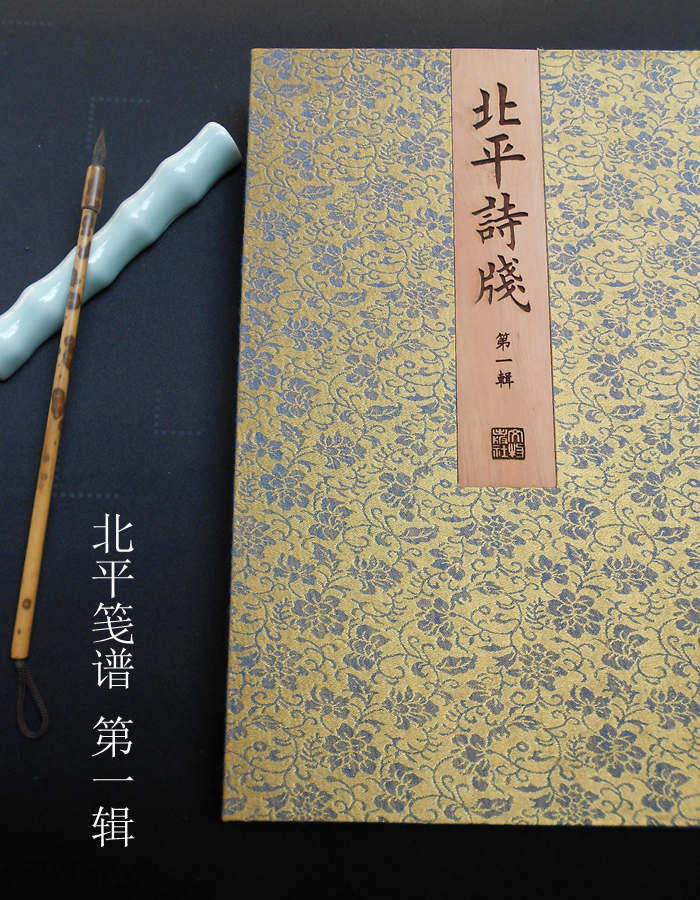 北平詩牋
第一輯
北平笺谱 第一辑